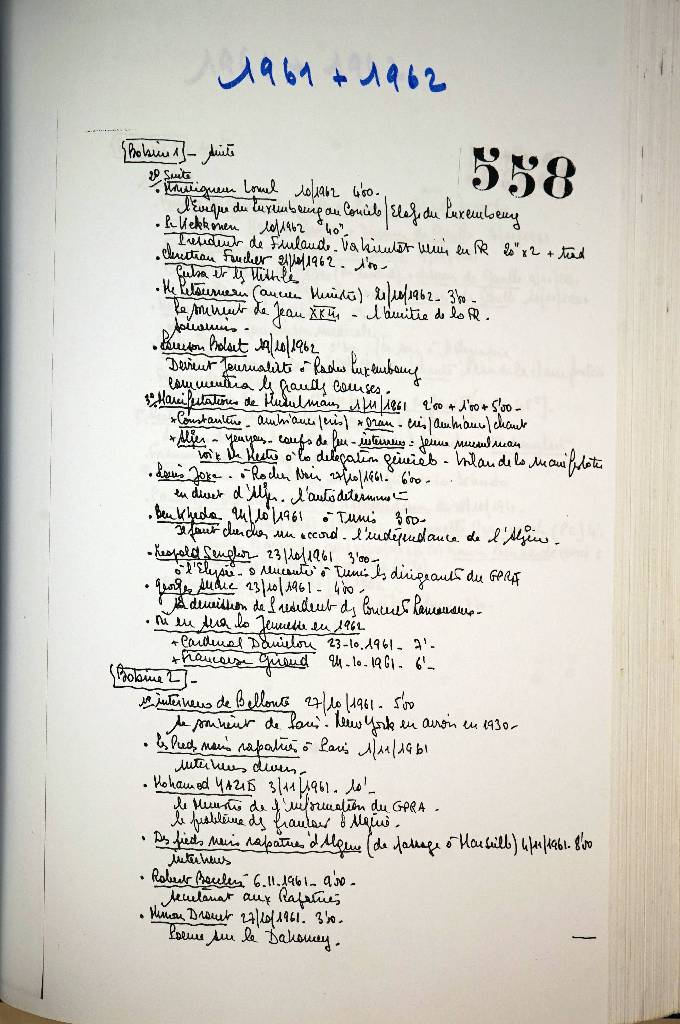 1961 + 1962
558
Bobine 1 - Suite
2° Suite
• Monseigneur Lomel 10/1962 4'00 -
l'Evêque du Luxembourg au Concile / Eloge du Luxembourg
• Dr Kekkonen 10/1962 40" -
Président de Finlande - Va bientôt venir en FR 20" x 2 + trad
• Christian Fouchet 21/10/1962 - 1'00 -
Cuba et les Missiles
• Mr Letourneau (ancien Ministre) 20/10/1962 - 3'00 -
Se souvient de Jean XXIII - l'amitié de la FR.
souvenirs -
• Louison Bobet 19/10/1962
Devient Journaliste à Radio Luxembourg
commentera les grandes courses.
3° Manifestations de Musulmans 1/11/1961 2'00 + 1'00 + 5'00 -
+ Constantine - ambiance (cris) + Oran - cris/ambiance/chant
+ Alger - youyous - coups de feu - interview = jeune musulman
voix de à la délégation générale - bilan de la manifestation
• Louis Joxe - à Rocher Noir 27/10/1961 - 6'00 -
en direct d'Alger - l'autodétermination
• Ben Khedda 24/10/1961 à Tunis 3'00 -
Il faut chercher un accord - l'indépendance de l'Algérie -
• Léopold Senghor 23/10/1961 3'00 -
à l'Elysée - a rencontré à Tunis les dirigeants du GPRA
• Georges Auric 23/10/1961 - 4'00 -
sa démission de Président des Concerts Lamoureux -
• Où en sera la Jeunesse en 1962
+ Cardinal Daniélou 23-10-1961 - 7' -
+ Françoise Giroud 24-10-1961 - 6' -
Bobine 2 -
1° interview de Bellonte 27/10/1961 - 5'00
se souvient de Paris - New York en avion en 1930 -
• les Pieds noirs rapatriés à Paris 1/11/1961
interviews divers -
• Mohamed YAZID 3/11/1961 - 10' -
le Ministre de l'information du GPRA -
le problème des français d'Algérie -
• Des pieds noirs rapatriés d'Algérie (de passage à Marseille) 4/11/1961 - 8'00
interviews
• Robert Boulin 6.11.1961 - 9'00 -
secrétariat aux Rapatriés
• Minou Drouet 27/10/1961 - 3'00 -
Poème sur le Dahomey.